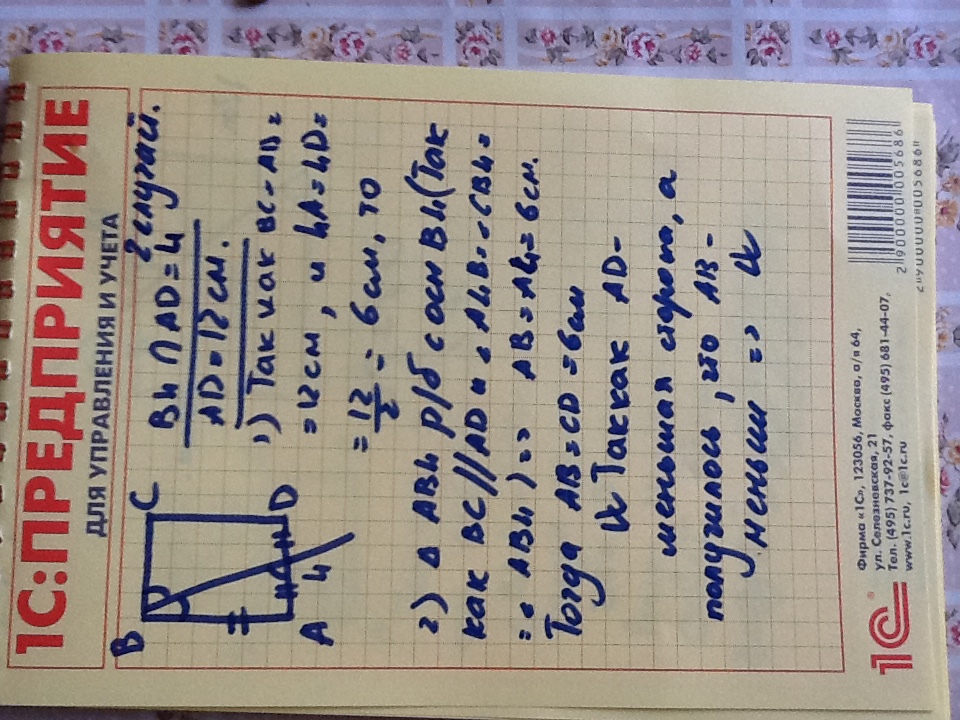 1С:ПРЕДПРИЯТИЕ
ДЛЯ УПРАВЛЕНИЯ И УЧЕТА
B C
A Ч D
2 случай.
BЧ ∩ AD = Ч
AD = 12 см.
1) Так как BC = AD =
= 12 см, и ЧA = ЧD =
= 12/2 = 6 см, то
2) Δ ABЧ р/б с осн BЧ (Так
как BC//AD и ∠AЧB = ∠CBЧ =
= ∠ABЧ) => AB = AЧ = 6 см.
Тогда AB = CD = 6 см
Так как AD -
меньшая сторона, а
получилось, что AB -
меньш =>
2900000005686
Фирма «1С», 123056, Москва, а/я 64,
ул. Селезневская, 21
Тел. (495) 737-92-57, факс (495) 681-44-07,
www.1c.ru, 1c@1c.ru
1С®